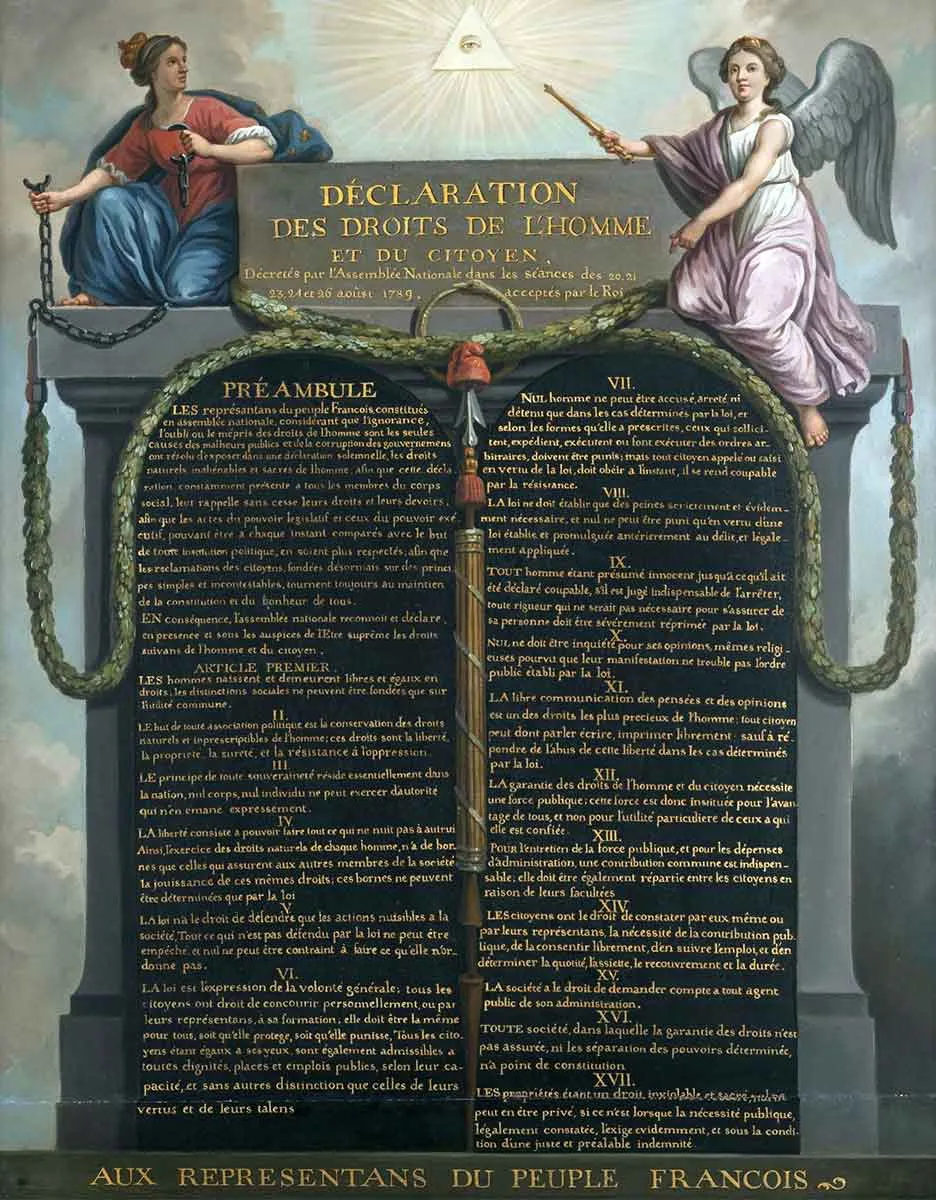 DÉCLARATION
DES DROITS DE L'HOMME
ET DU CITOYEN,
Décretés par l'Assemblée Nationale dans les séances des 20. 21
23, 24 et 26 aoûst 1789, acceptés par le Roi
PRÉAMBULE
LES représantans du peuple Francois, constitués
en assemblée nationale, considérant que l'ignorance,
l'oubli ou le mépris des droits de l'homme sont les seules
causes des malheurs publics et de la corruption des gouvernemens
ont résolu d'exposer dans une déclaration solemnelle, les droits
naturels, inaliénables et sacrés de l'homme; afin que cette décla_
ration, constamment présente a tous les membres du corps
social, leur rappelle sans cesse leurs droits et leurs devoirs;
afin que les actes du pouvoir législatif et ceux du pouvoir exé_
cutif, pouvant être a chaque instant comparés avec le but
de toute institution politique, en soient plus respectés; afin que
les reclamations des citoyens, fondées désormais sur des princi
pes simples et incontestables, tournent toujours au maintien
de la constitution et du bonheur de tous.
EN conséquence, l'assemblée nationale reconnoit et déclare,
en presence et sous les auspices de l'Etre suprême les droits
suivans de l'homme et du citoyen.
ARTICLE PREMIER.
LES hommes naissent et demeurent libres et égaux en
droits; les distinctions sociales ne peuvent être fondées que sur
l'utilité commune.
II.
LE but de toute association politique est la conservation des droits
naturels et inprescriptibles de l'homme; ces droits sont la liberté,
la propriété, la sureté, et la résistance à l'oppression.
III.
LE principe de toute souveraineté réside essentiellement dans
la nation, nul corps, nul individu ne peut exercer d'autorité
qui n'en emane expressement.
IV.
LA liberté consiste a pouvoir faire tout ce qui ne nuit pas à autrui
Ainsi, l'exercice des droits naturels de chaque homme, n'a de bor_
nes que celles qui assurent aux autres membres de la société
la jouissance de ces mêmes droits; ces bornes ne peuvent
être déterminées que par la loi
V.
LA loi n'a le droit de défendre que les actions nuisibles a la
société. Tout ce qui n'est pas défendu par la loi ne peut être
empêché, et nul ne peut être contraint à faire ce qu'elle n'or_
donne pas.
VI.
LA loi est l'expression de la volonté générale; tous les
citoyens ont droit de concourir personnellement, ou par
leurs représentans, à sa formation; elle doit être la même
pour tous, soit qu'elle protege, soit qu'elle punisse, Tous les cito_
yens étant égaux a ses yeux, sont également admissibles a
toutes dignités, places et emplois publics, selon leur ca_
pacité, et sans autres distinction que celles de leurs
vertus et de leurs talens
VII.
NUL homme ne peut être accusé, arreté ni
détenu que dans les cas déterminés par la loi, et
selon les formes qu'elle a prescrites, ceux qui sollici_
tent, expédient, exécutent ou font exécuter des ordres ar_
bitraires, doivent être punis; mais tout citoyen appelé ou saisi
en vertu de la loi, doit obéir a l'instant, il se rend coupable
par la résistance.
VIII.
LA loi ne doit établir que des peines strictement et évidem_
ment nécessaire, et nul ne peut être puni qu'en vertu d'une
loi établie et promulguée antérierement au délit, et légale_
ment appliquée.
IX.
TOUT homme étant présumé innocent jusqu'a ce qu'il ait
été déclaré coupable, s'il est jugé indispensable de l'arrêter,
toute rigueur qui ne serait pas nécessaire pour s'assurer de
sa personne doit être sévèrement réprimée par la loi.
X.
NUL ne doit être inquiété pour ses opinions, mêmes religi_
euses pourvu que leur manifestation ne trouble pas l'ordre
public établi par la loi.
XI.
LA libre communication des pensées et des opinions
est un des droits les plus precieux de l'homme; tout citoyen
peut donc parler écrire, imprimer librement; sauf à ré_
pondre de l'abus de cette liberté dans les cas déterminés
par la loi.
XII.
LA garantie des droits de l'homme et du citoyen nécessite
une force publique; cette force est donc instituée pour l'avan_
tage de tous, et non pour l'utilité particuliere de ceux a qui
elle est confiée.
XIII.
POUR l'entretien de la force publique, et pour les dépenses
d'administration, une contribution commune est indispen_
sable; elle doit être également répartie entre les citoyens en
raison de leurs facultées
XIV.
LES citoyens ont le droit de constater par eux même ou
par leurs représentans, la nécessité de la contribution pub_
lique, de la consentir librement, d'en suivre l'emploi, et d'en
déterminer la quotité, l'assiette, le recouvrement et la durée.
XV.
LA société a le droit de demander compte a tout agent
public de son administration.
XVI.
TOUTE société, dans laquelle la garantie des droits n'est
pas assurée, ni les séparation des pouvoirs déterminée,
n'a point de constitution
XVII.
LES propriétés étant un droit inviolable et sacré, nul ne
peut en être privé, si ce n'est lorsque la nécessité publique,
légalement constatée, l'exige evidemment, et sous la condi_
tion d'une juste et préalable indemnité.
AUX REPRESENTANS DU PEUPLE FRANCOIS